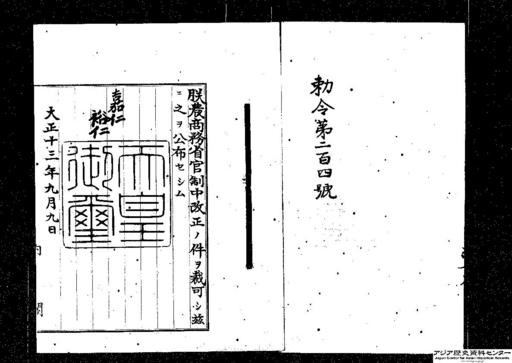 勅令第二百四號
朕農商務省官制中改正ノ件ヲ裁可シ茲
ニ之ヲ公布セシム
嘉仁
裕仁
天皇
御璽
大正十三年九月九日
内閣
アジア歴史資料センター
Japan Center for Asian Historical Records